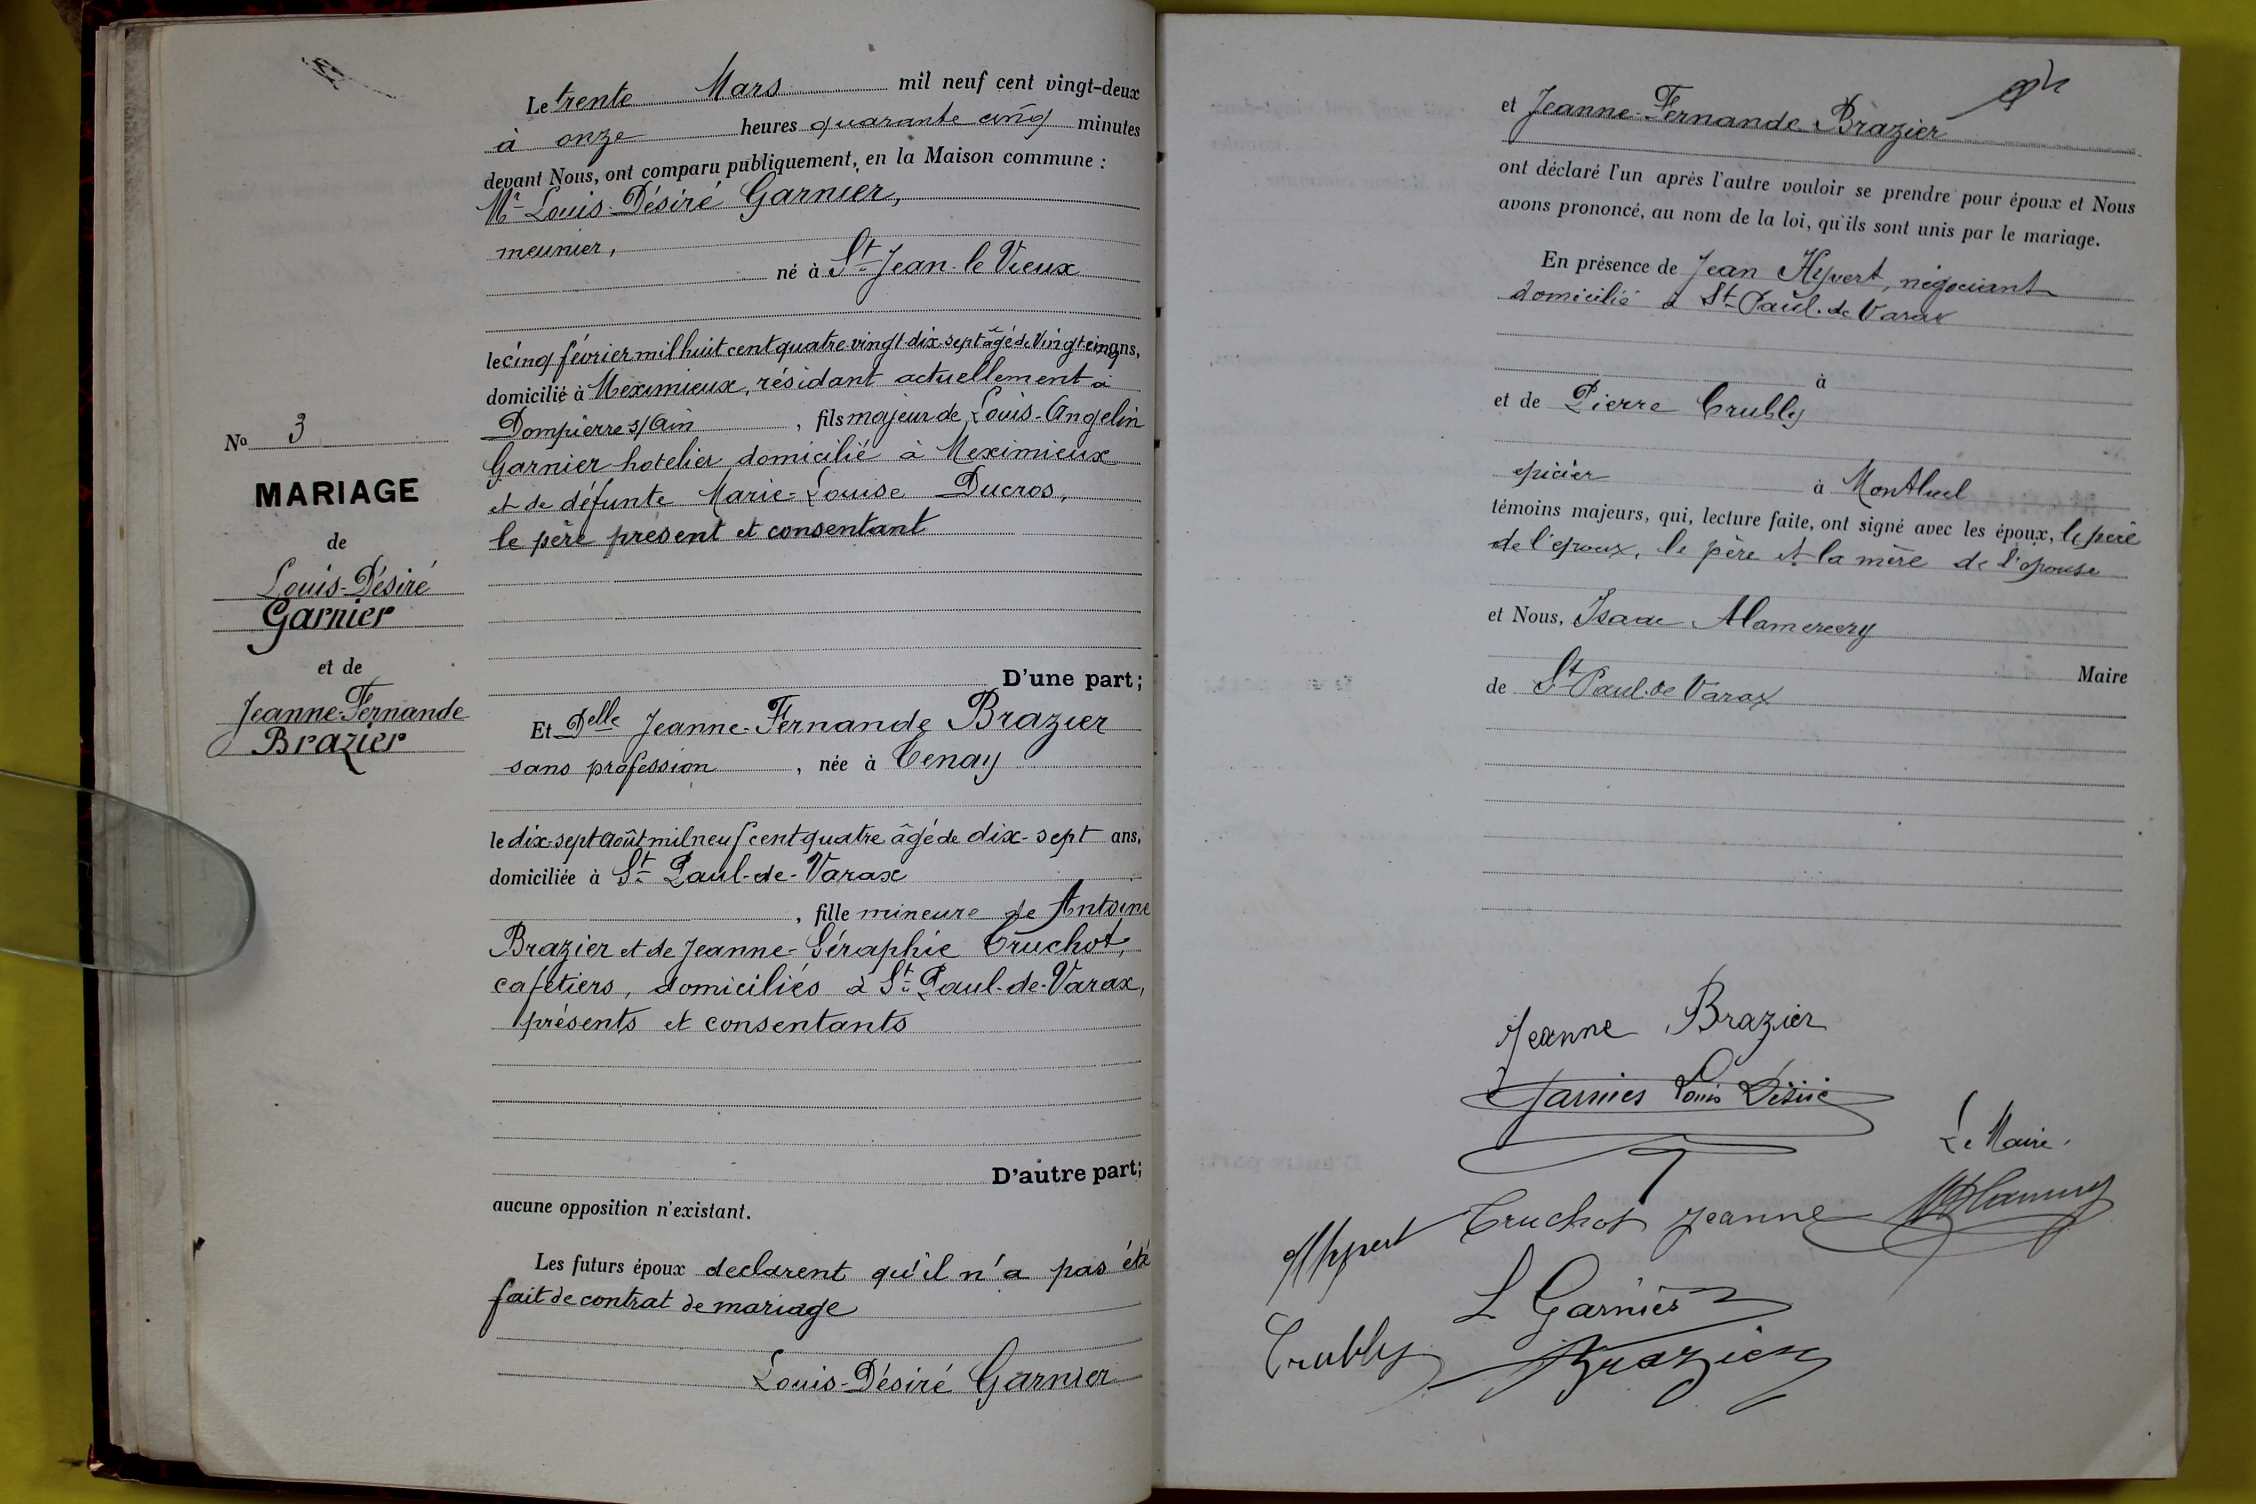 Le trente Mars mil neuf cent vingt-deux
à onze heures quarante cinq minutes
devant Nous, ont comparu publiquement, en la Maison commune :
Mr Louis-Désiré Garnier,
meunier,
né à St Jean-le Vieux
le cinq février mil huit cent quatre vingt-dix-sept âgé de Vingt-cinq ans,
domicilié à Meximieux, résidant actuellement à
Dompierre s/Ain, fils majeur de Louis-Angelin
Garnier hotelier domicilié à Meximieux
et de défunte Marie-Louise Ducros,
le père présent et consentant
D'une part;
Et Delle Jeanne-Fernande Brazier
sans profession, née à Tenay
le dix-sept août mil neuf cent quatre âgé de dix-sept ans,
domiciliée à St Paul-de-Varax
, fille mineure de Antoine
Brazier et de Jeanne-Séraphie Truchot,
cafetiers, domiciliés à St Paul-de-Varax,
présents et consentants
D'autre part;
aucune opposition n'existant.
Les futurs époux declarent qu'il n'a pas été
fait de contrat de mariage
Louis-Désiré Garnier
No 3
MARIAGE
de
Louis-Désiré
Garnier
et de
Jeanne-Fernande
Brazier
et Jeanne-Fernande Brazier
ont déclaré l'un après l'autre vouloir se prendre pour époux et Nous
avons prononcé, au nom de la loi, qu'ils sont unis par le mariage.
En présence de Jean Hyvert, négociant
domicilié à St-Paul-de Varax
à
et de Pierre Trubly
epicier à Montluel
témoins majeurs, qui, lecture faite, ont signé avec les époux, le père
de l'epoux, le père et la mère de l'épouse
et Nous, Isaac
Maire
de St Paul-de Varax
Jeanne Brazier
Garnier Louis Désiré
Le Maire.
Hyvert
Truchot Jeanne
L Garnier
Trubly
Brazier